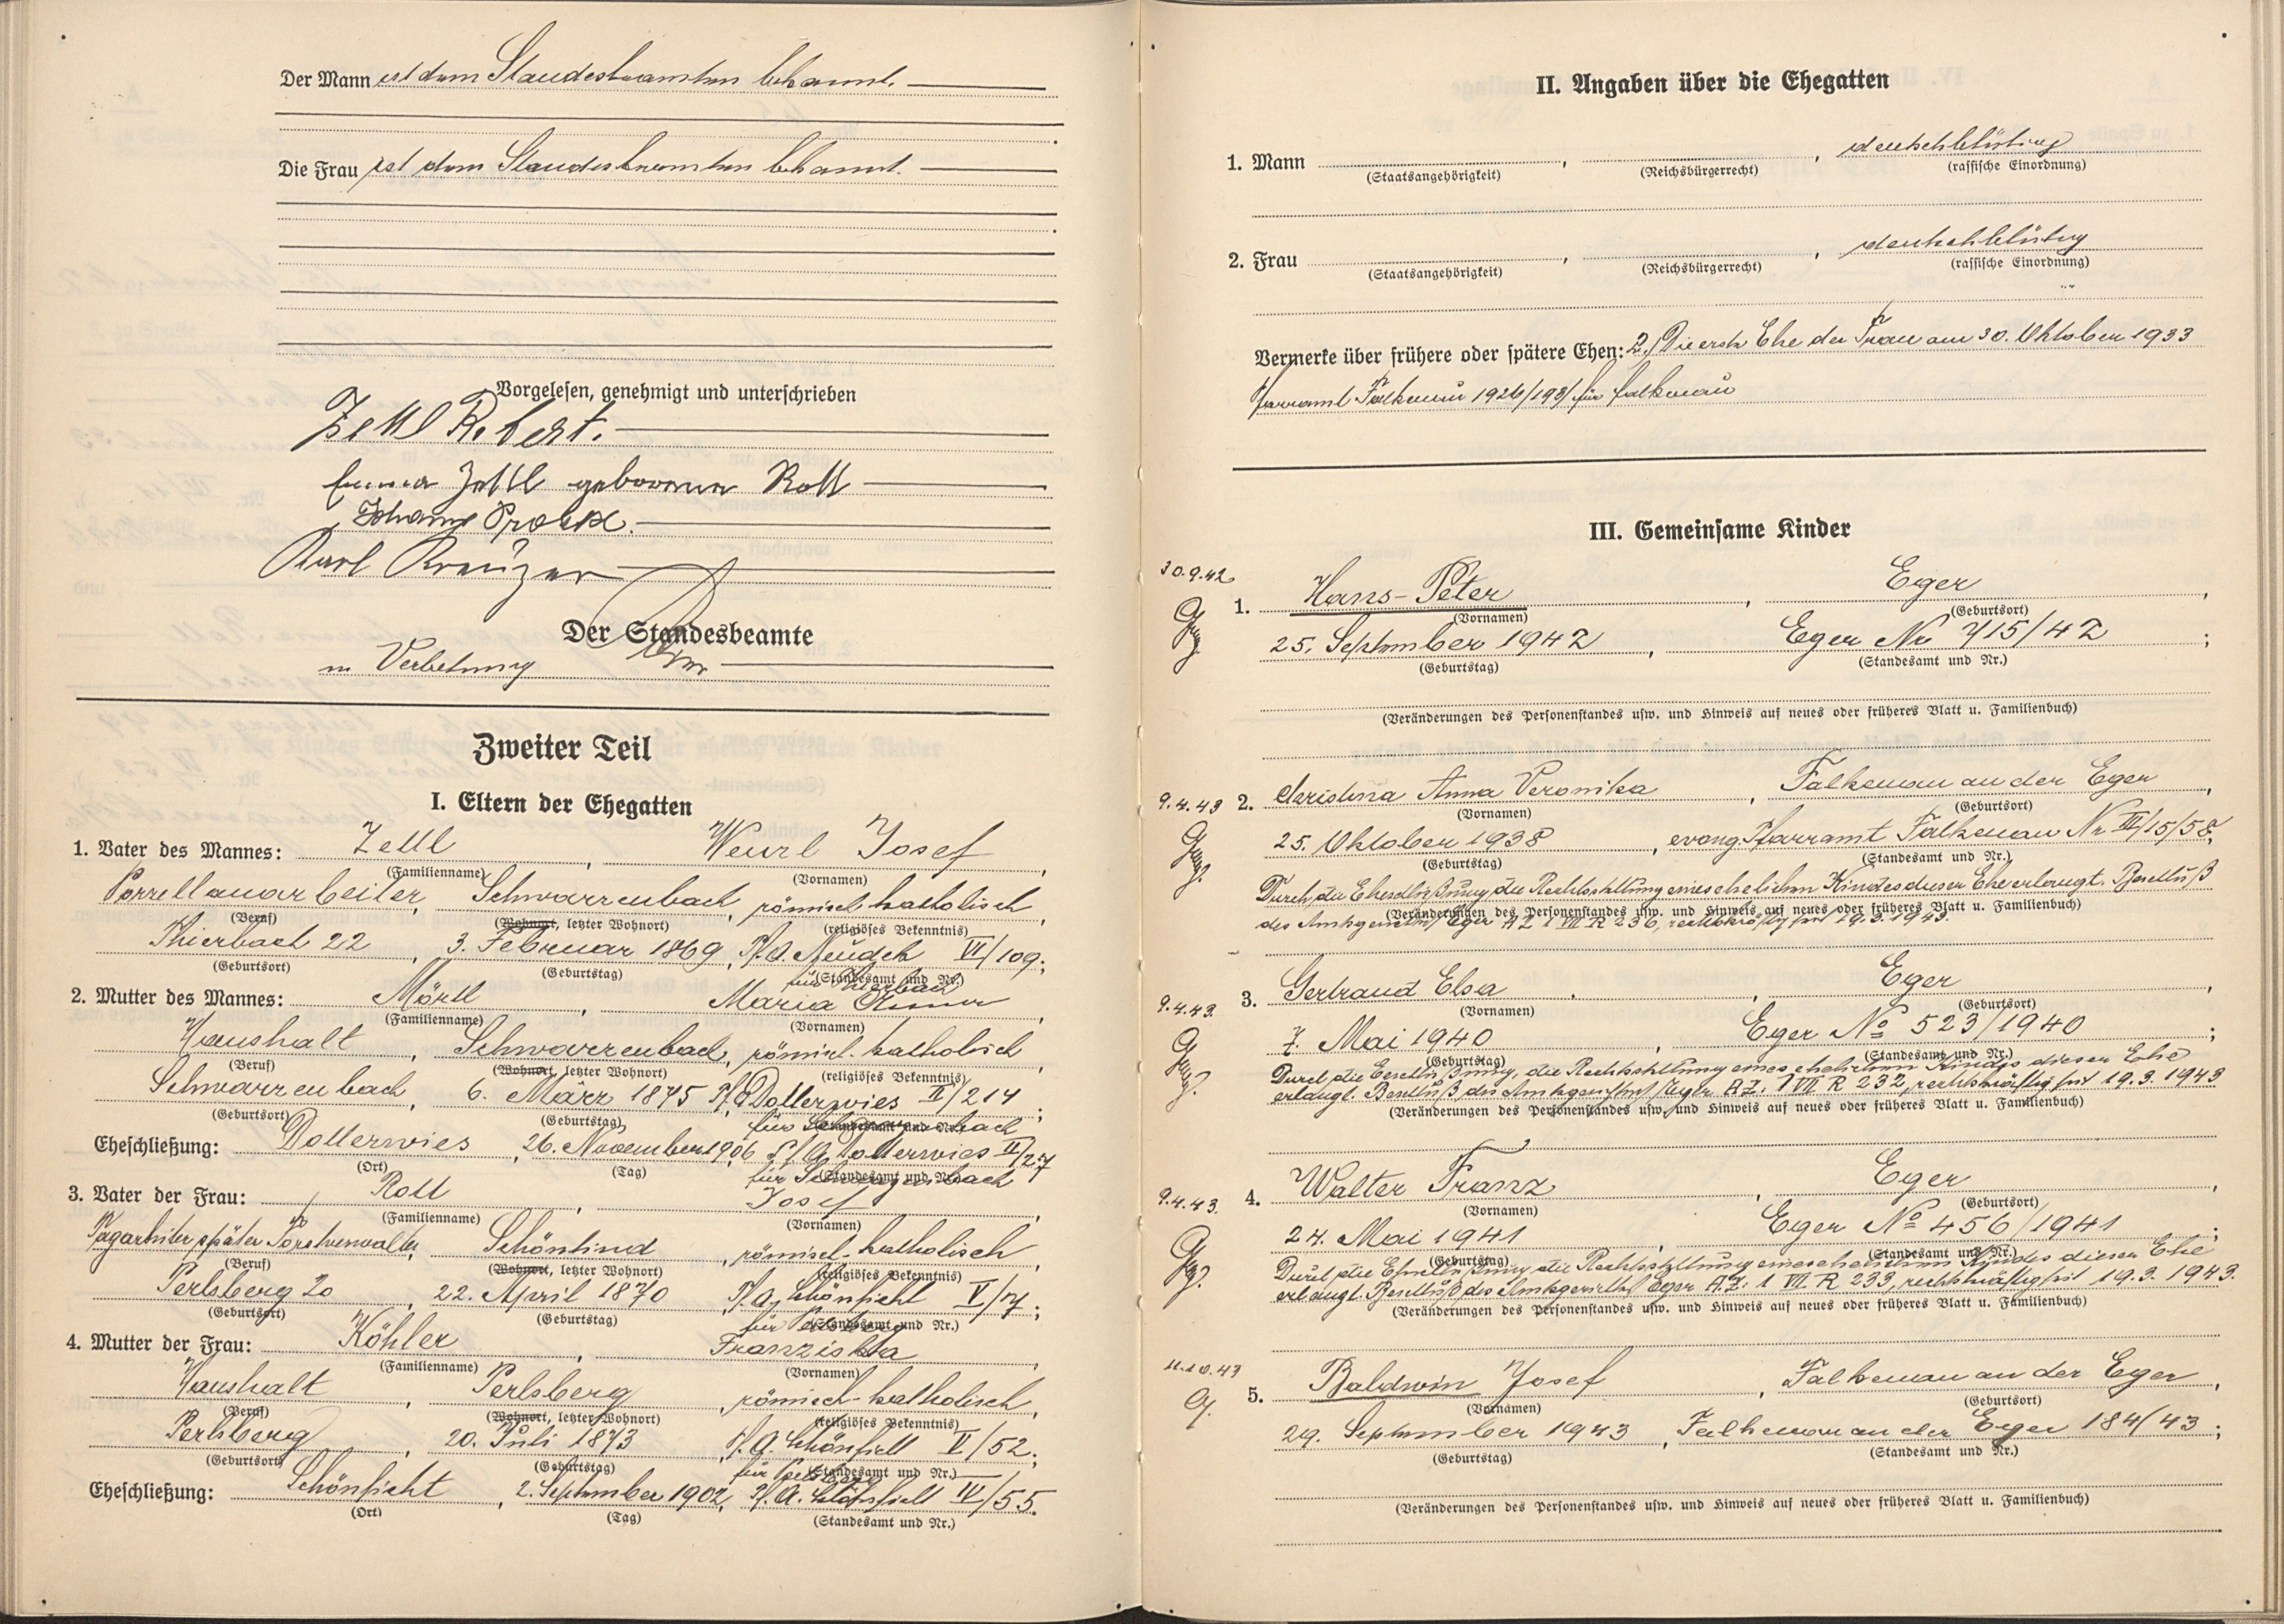 Der Mann ist dem Standesbeamten bekannt.
Die Frau ist dem Standesbeamten bekannt.
Vorgelesen, genehmigt und unterschrieben
Zettl Robert.
Emma Zettl geborene Roll
Karl Kreuzer
Der Standesbeamte
in Vertretung
Zweiter Teil
I. Eltern der Ehegatten
1. Vater des Mannes: Zettl, Wenzl Josef,
(Familienname) (Vornamen)
Porzellanarbeiter, Schwarzenbach, römisch katholisch,
(Beruf) (Wohnort, letzter Wohnort) (religiöses Bekenntnis)
Thierbach 22, 3. Februar 1869, Pf.A. Neudek VI/109;
(Geburtsort) (Geburtstag) (Standesamt und Nr.)
für Thierbach
2. Mutter des Mannes: Mörtl, Maria Anna,
(Familienname) (Vornamen)
Haushalt, Schwarzenbach, römisch-katholisch
(Beruf) (Wohnort, letzter Wohnort) (religiöses Bekenntnis)
Schwarzenbach, 6. März 1875 Pf.A. Dotterwies II/214;
(Geburtsort) (Geburtstag) (Standesamt und Nr.)
für Schwarzenbach
Eheschließung: Dotterwies, 26. November 1906, Pf.A. Dotterwies II/27
(Ort) (Tag) (Standesamt und Nr.)
für Schwarzenbach
3. Vater der Frau: Roll, Josef,
(Familienname) (Vornamen)
später Forstverwalter, Schönlind, römisch-katholisch,
(Beruf) (Wohnort, letzter Wohnort) (religiöses Bekenntnis)
Perlsberg 20, 22. April 1870 Pf.A. Schönficht V/7;
(Geburtsort) (Geburtstag) (Standesamt und Nr.)
für Perlsberg
4. Mutter der Frau: Köhler, Franziska,
(Familienname) (Vornamen)
Haushalt, Perlsberg, römisch-katholisch,
(Beruf) (Wohnort, letzter Wohnort) (religiöses Bekenntnis)
Perlsberg, 20. Juli 1873 Pf.A. Schönficht V/52;
(Geburtsort) (Geburtstag) (Standesamt und Nr.)
für Perlsberg
Eheschließung: Schönficht, 2. September 1902, Pf.A. Schönficht IV/55.
(Ort) (Tag) (Standesamt und Nr.)
II. Angaben über die Ehegatten
1. Mann , , deutschblütig
(Staatsangehörigkeit) (Reichsbürgerrecht) (rassische Einordnung)
2. Frau , , deutschblütig
(Staatsangehörigkeit) (Reichsbürgerrecht) (rassische Einordnung)
Vermerke über frühere oder spätere Ehen: 2./ Die erste Ehe der Frau am 30. Oktober 1933
Pfarramt Falkenau 1926/193/ für Falkenau
III. Gemeinsame Kinder
30.9.42
1. Hans-Peter, Eger,
(Vornamen) (Geburtsort)
25. September 1942, Eger Nr 715/42;
(Geburtstag) (Standesamt und Nr.)
(Veränderungen des Personenstandes usw. und Hinweis auf neues oder früheres Blatt u. Familienbuch)
9.4.43 2. Christina Anna Veronika, Falkenau an der Eger,
(Vornamen) (Geburtsort)
25. Oktober 1938, evang. Pfarramt Falkenau Nr III/15/58;
(Geburtstag) (Standesamt und Nr.)
Durch die Eheschließung die Rechtsstellung eines ehelichen Kindes dieser Ehe erlangt. Beschluß
(Veränderungen des Personenstandes usw. und Hinweis auf neues oder früheres Blatt u. Familienbuch)
des Amtsgerichtes Eger AZ 1 VII R 236, rechtskräftig seit 19.3.1943.
9.4.43. 3. Gertraud Elsa, Eger,
(Vornamen) (Geburtsort)
7. Mai 1940, Eger No 523/1940;
(Geburtstag) (Standesamt und Nr.)
Durch die Eheschließung, die Rechtsstellung eines ehelichen Kindes dieser Ehe
erlangt. Beschluß des Amtsgerichtes Eger AZ. 1 VII R 232, rechtskräftig seit 19.3.1943
(Veränderungen des Personenstandes usw. und Hinweis auf neues oder früheres Blatt u. Familienbuch)
9.4.43. 4. Walter Franz, Eger,
(Vornamen) (Geburtsort)
24. Mai 1941, Eger No 456/1941;
(Geburtstag) (Standesamt und Nr.)
Durch die Eheschließung, die Rechtsstellung eines ehelichen Kindes dieser Ehe
erlangt. Beschluß des Amtsgerichtes Eger AZ. 1 VII R 233, rechtskräftig seit 19.3.1943.
(Veränderungen des Personenstandes usw. und Hinweis auf neues oder früheres Blatt u. Familienbuch)
11.10.43
5. Baldwin Josef, Falkenau an der Eger,
(Vornamen) (Geburtsort)
29. September 1943, Falkenau an der Eger 184/43;
(Geburtstag) (Standesamt und Nr.)
(Veränderungen des Personenstandes usw. und Hinweis auf neues oder früheres Blatt u. Familienbuch)